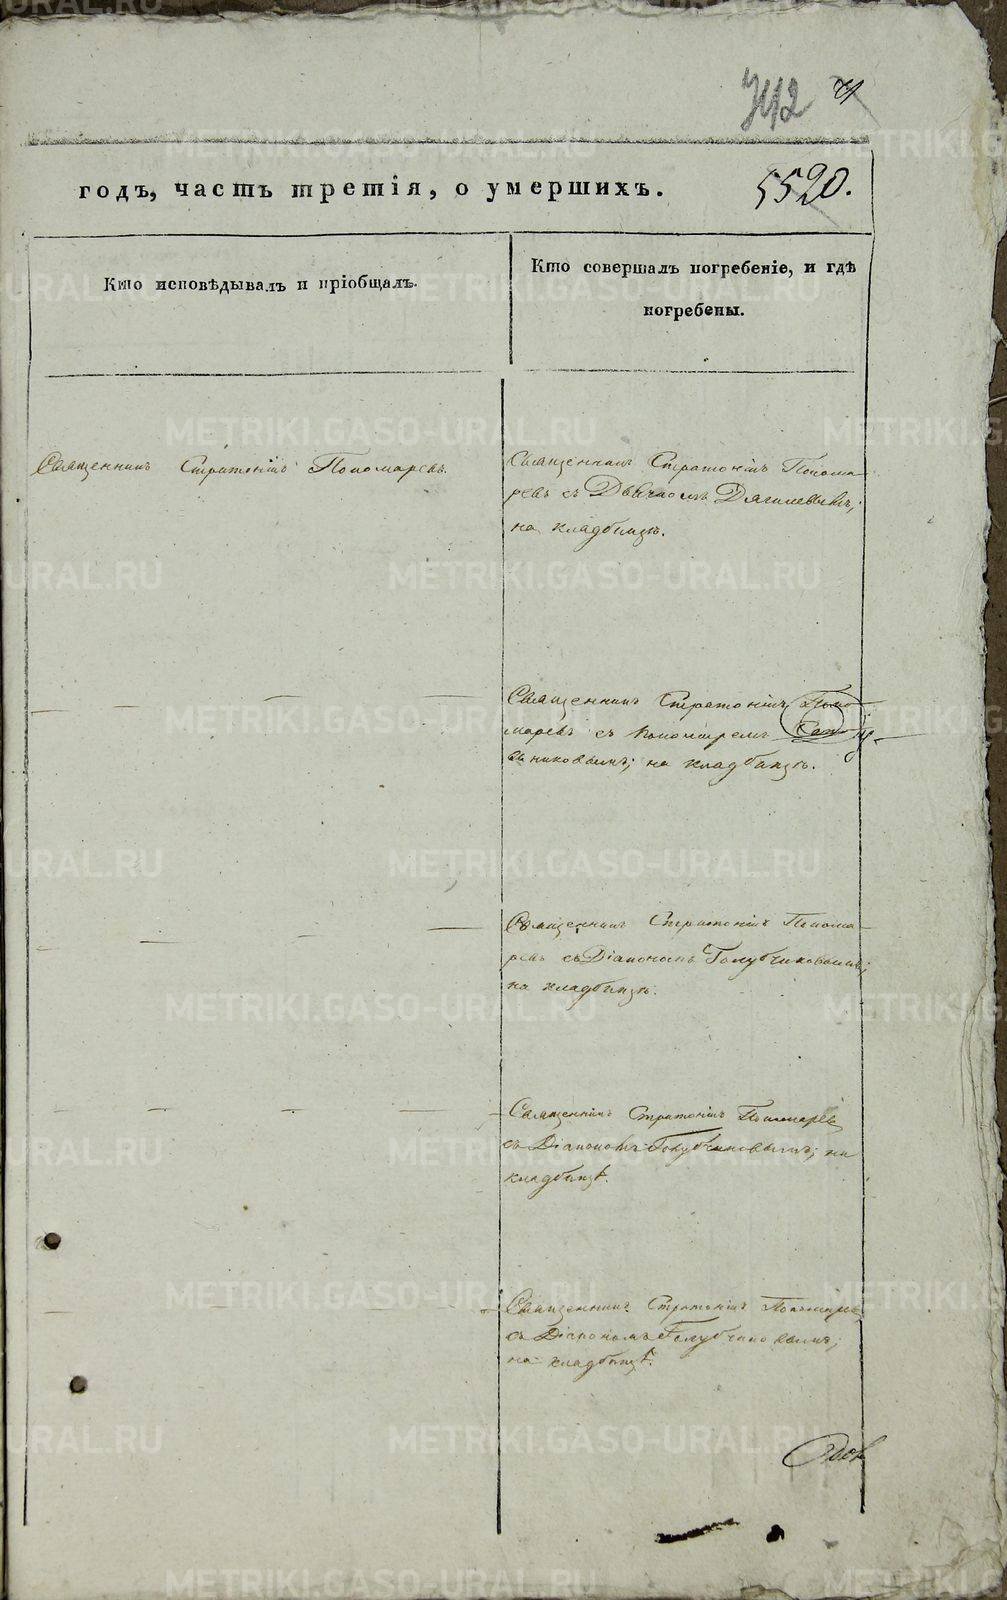 742
5520.
годъ, часть третія, о умершихъ.
Кто исповѣдывалъ и пріобщалъ.
Кто совершалъ погребеніе, и гдѣ
погребены.
Священникъ Стратоникъ Пономаревъ.
Священникъ Стратоникъ Понома-
ревъ съ Дьячкомъ Дягилевымъ;
на кладбищѣ.
Священникъ Стратоникъ Поно-
маревъ съ Пономаремъ
никовымъ; на кладбищѣ.
Священникъ Стратоникъ Понома-
ревъ съ Діакономъ Голубчиковымъ;
на кладбищѣ.
Священникъ Стратоникъ Пономаревъ
съ Діакономъ Голубчиковымъ; на
кладбищѣ.
Священникъ Стратоникъ Пономаревъ
съ Діакономъ Голубчиковымъ;
на кладбищѣ.
METRIKI.GASO-URAL.RU